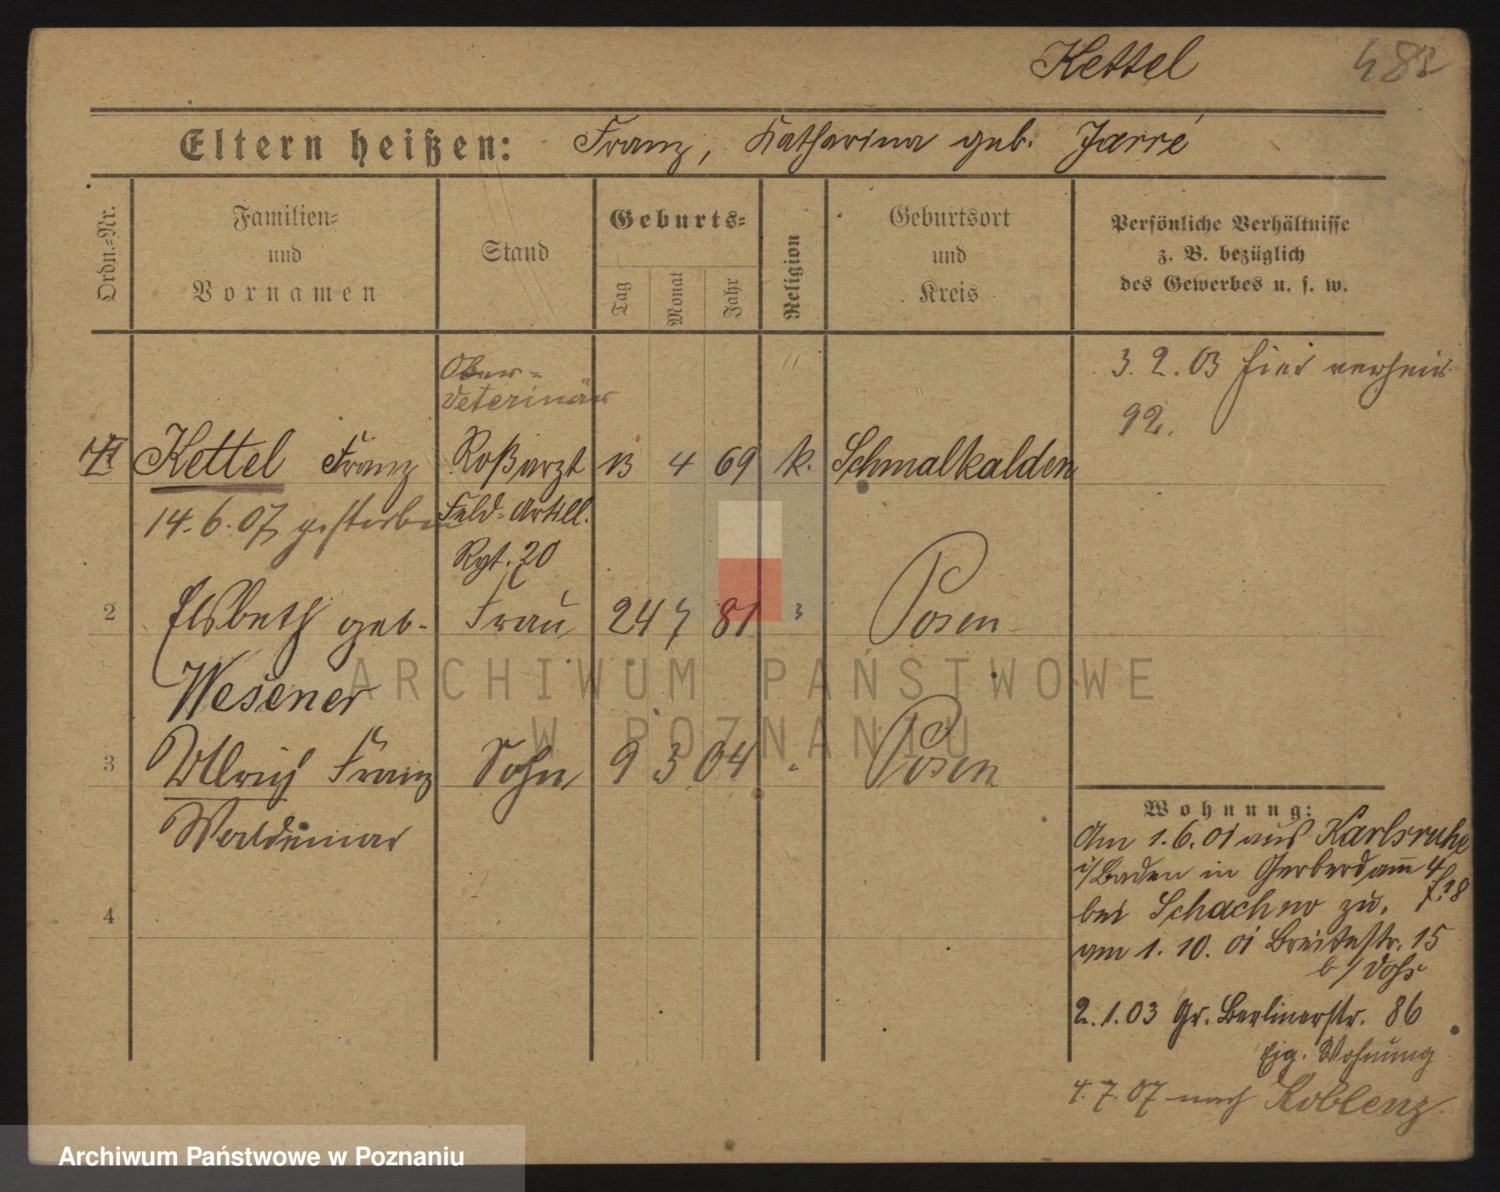 Kettel 483
Eltern heißen: Franz, Katharina geb. Jarré
Ordn.=Nr.
Familien=
und
Vornamen
Stand
Geburts=
Tag
Monat
Jahr
Religion
Geburtsort
und
Kreis
Persönliche Verhältnisse
z. B. bezüglich
des Gewerbes u. s. w.
Ober=
veterinär
3. 2. 03 hier verheir.
92.
Kettel Franz Roßarzt 13 4 69 k. Schmalkalden
14. 6. 07 gestorben Feld-Artill.
Rgt. 20
2 Elsbeth geb. Frau 24 7 81 Posen
Wesener
3 Ullrich Franz Sohn 9 3 04 " Posen
Waldemar
4
Wohnung:
Am 1. 6. 01 aus Karlsruhe
i/Baden in Gerberdamm 4
bei Schachno zu.
am 1. 10. 01 Breitestr. 15
b/
2. 1. 03 Gr. Berlinerstr. 86
Eig. Wohnung
4. 7. 07 nach Koblenz.
ARCHIWUM PAŃSTWOWE
W POZNANIU
Archiwum Państwowe w Poznaniu